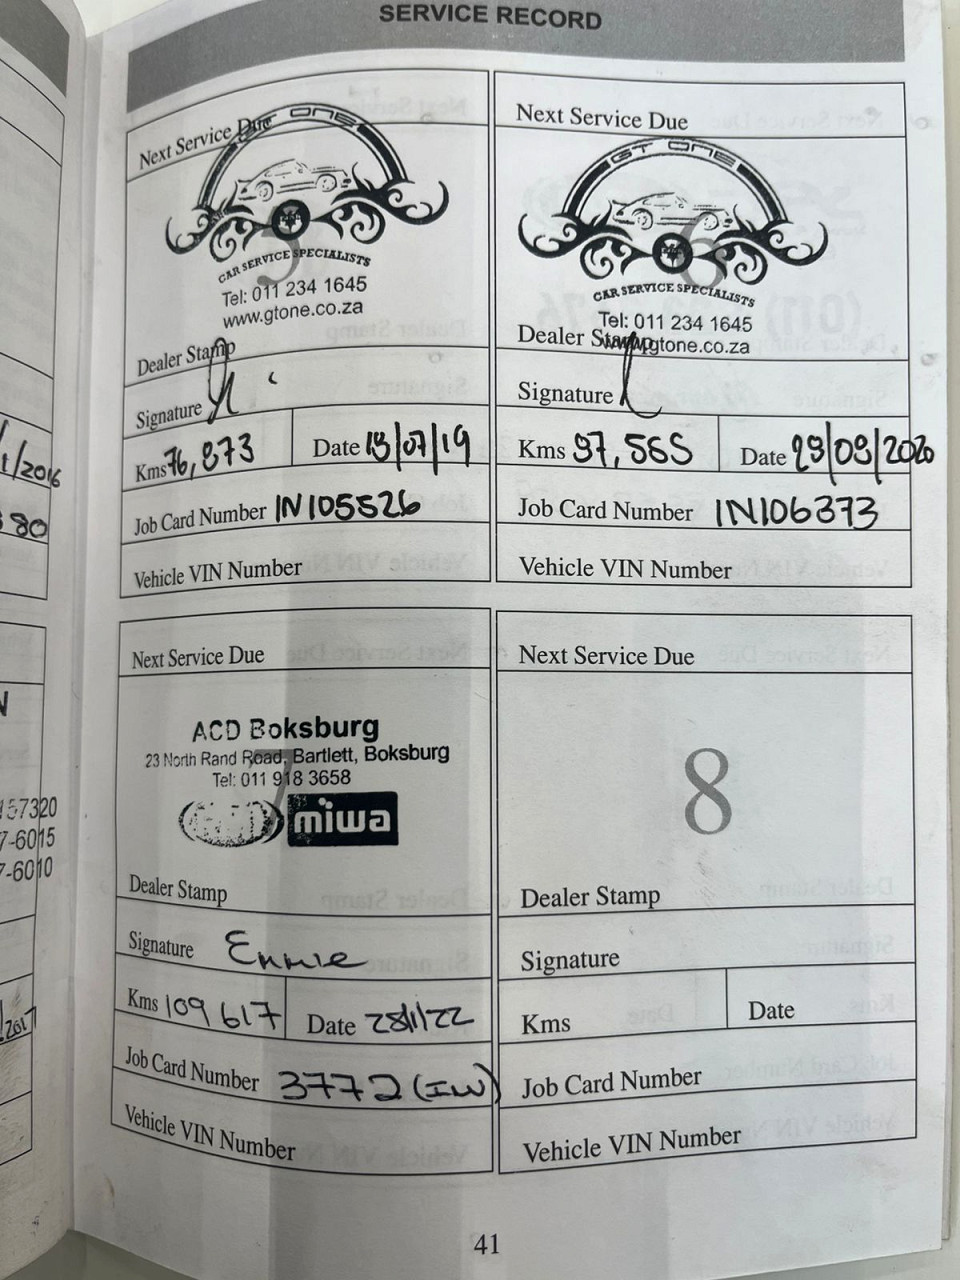 SERVICE RECORD
Next Service Due
GT ONE
5
CAR SERVICE SPECIALISTS
Tel: 011 234 1645
www.gtone.co.za
Dealer Stamp
Signature
Kms 76,873 Date 13/07/19
Job Card Number IN105526
Vehicle VIN Number
Next Service Due
GT ONE
6
CAR SERVICE SPECIALISTS
Tel: 011 234 1645
www.gtone.co.za
Dealer Stamp
Signature
Kms 97,565 Date 29/09/2020
Job Card Number IN106373
Vehicle VIN Number
Next Service Due
ACD Boksburg
23 North Rand Road, Bartlett, Boksburg
7
Tel: 011 918 3658
miwa
Dealer Stamp
Signature Ennie
Kms 109 617 Date 28/1/22
Job Card Number 3772 (IW)
Vehicle VIN Number
Next Service Due
8
Dealer Stamp
Signature
Kms Date
Job Card Number
Vehicle VIN Number
41
1/2016
80
157320
7-6015
7-6010